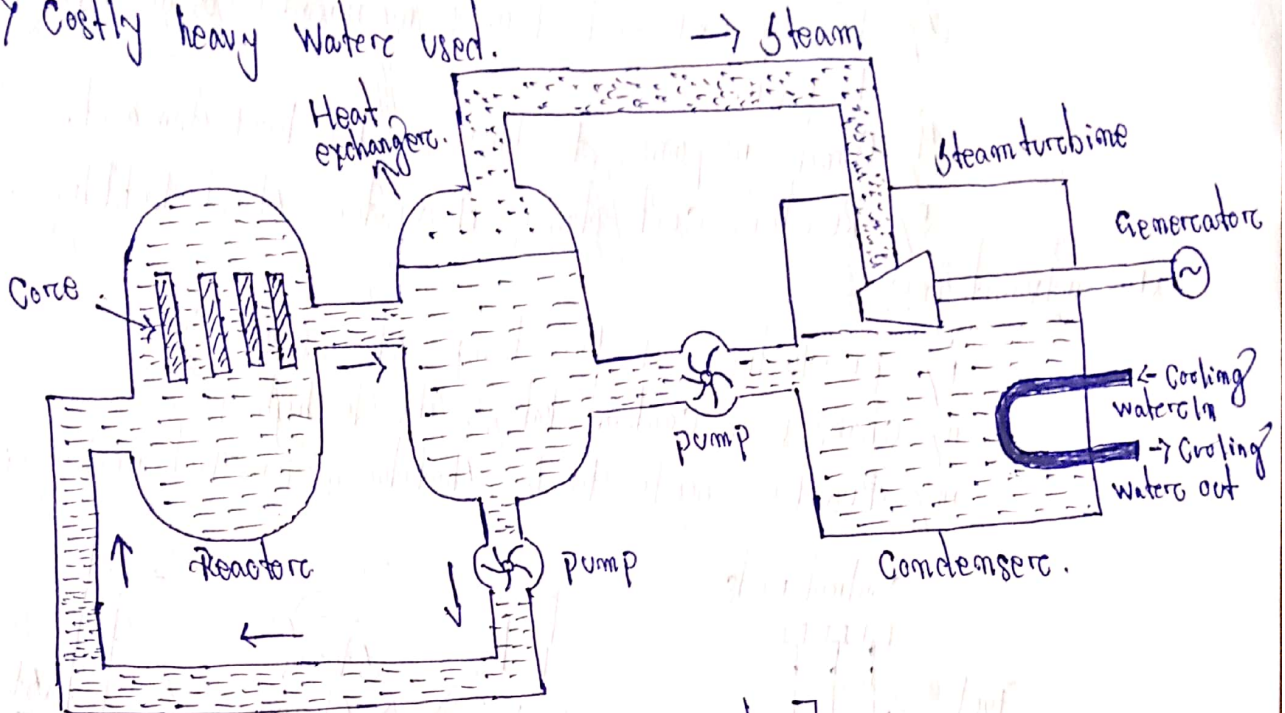 Costly heavy Water used.
→ Steam
Heat
exchanger.
Steam turbine
Generator
Core
← Cooling
water In
→ Cooling
water out
pump
Reactor
pump
Condenser.